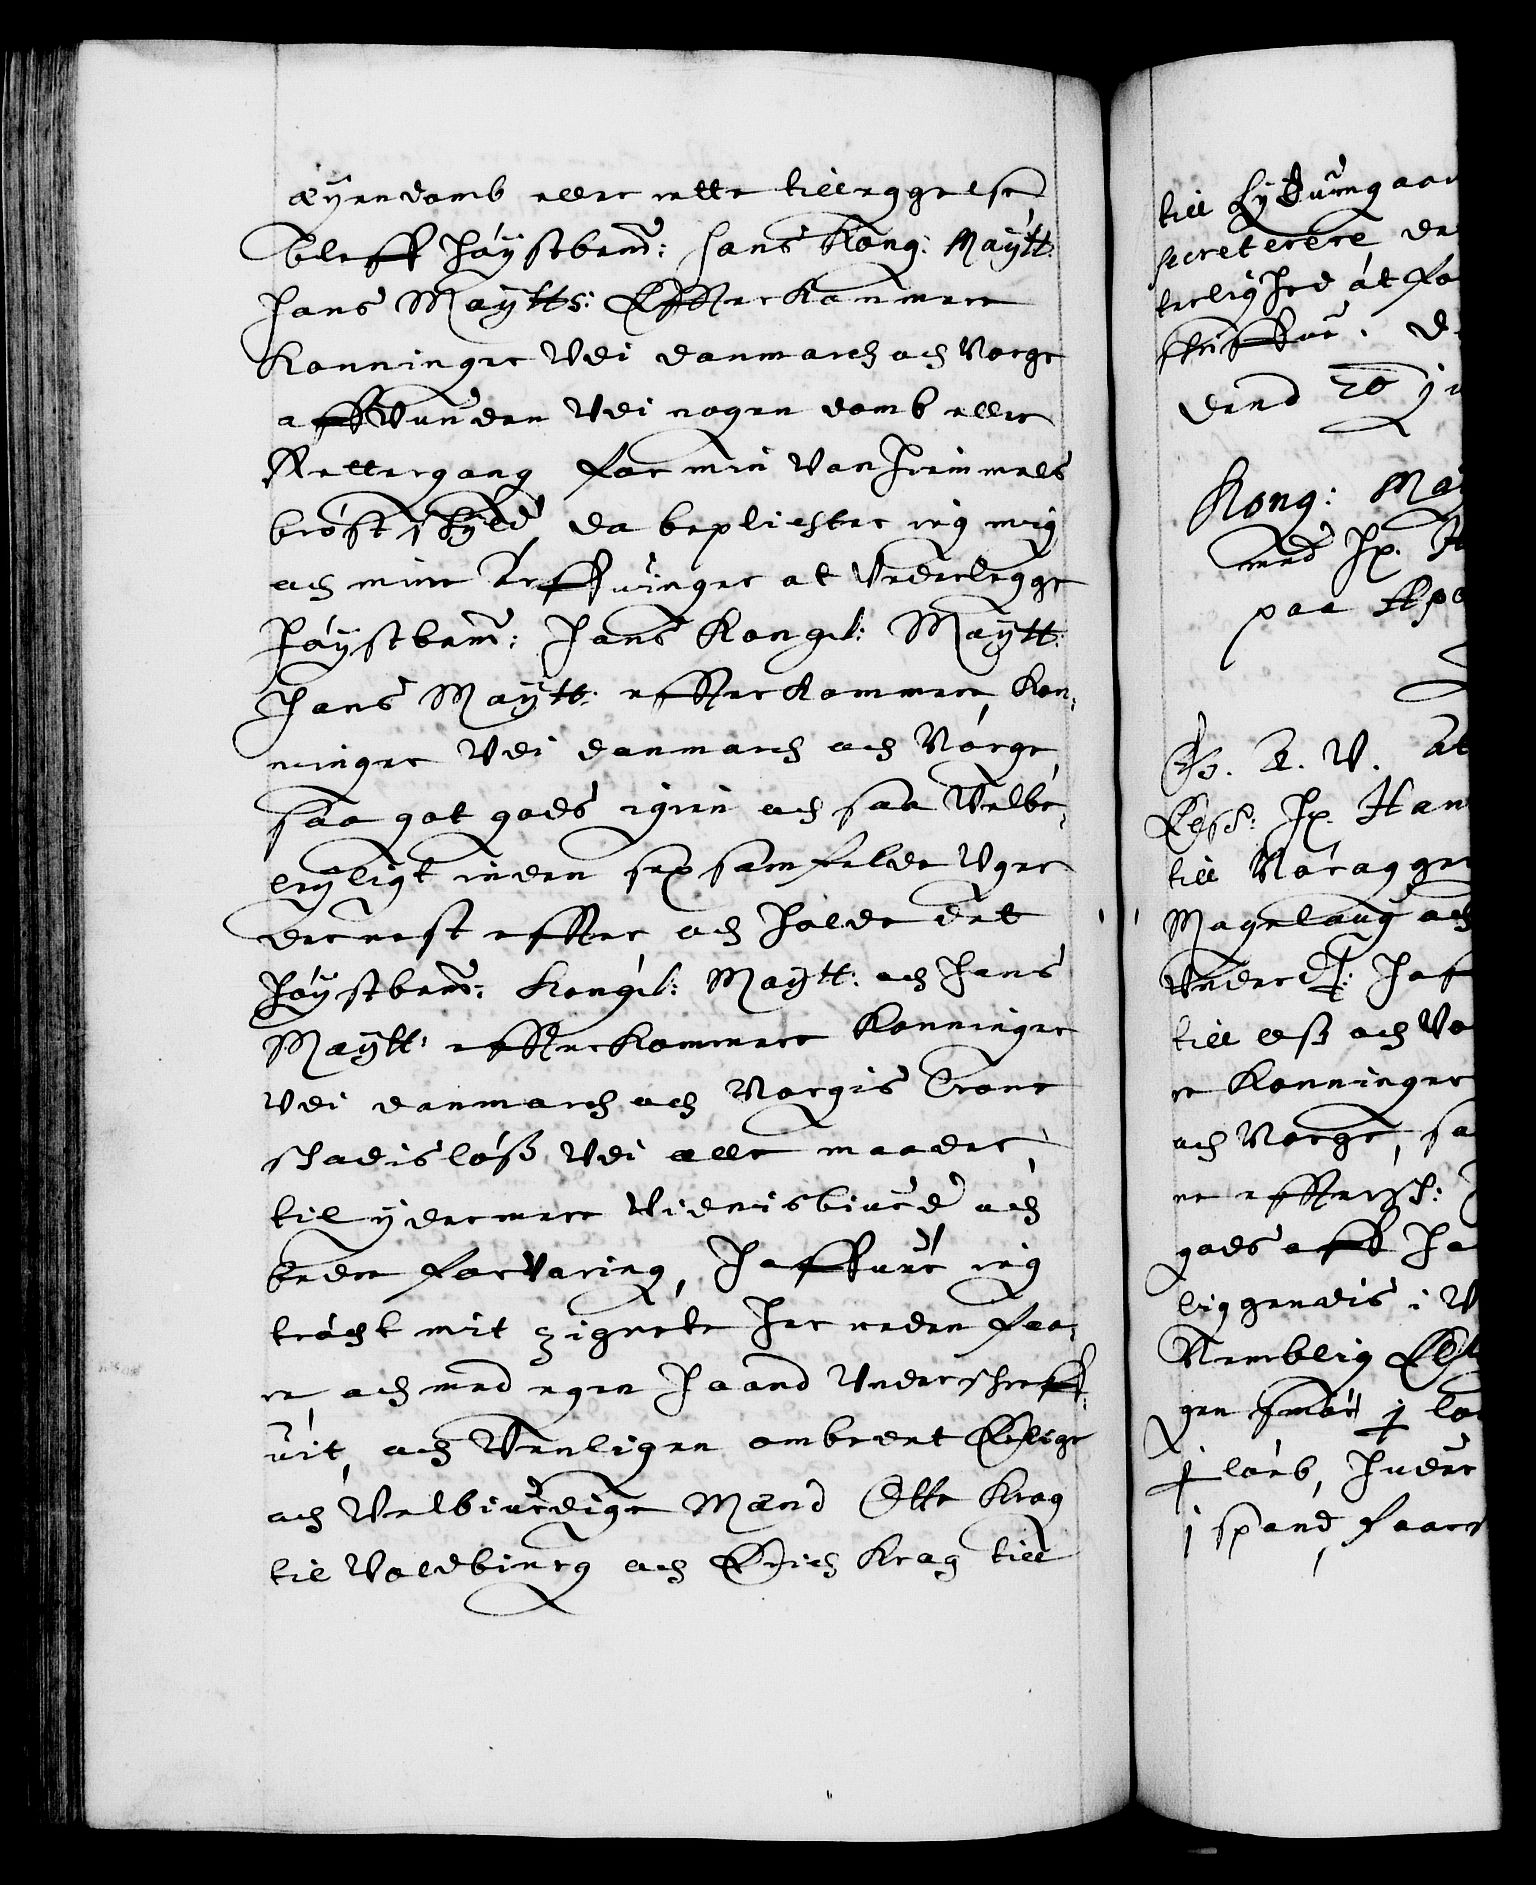 æyendomb eller rette tilleggelse
bleff höystbem: Hans Kong: Maytt:
Hans Maytts: Effterkommere
Konninger Udi danmarch och Norge
affvunden Udi nogen domb eller
Rettergang for min vanhiemmels
bröst schyld, da bepligter ieg mig
och mine Arffuinger at Vederlegge
Höystbem: Hans Kongel: Maytt:
Hans Maytt: effterkommere, Kon,
ninger Udi danmarch och Norge,
saa got gods igien och saa Velbe,
leyligt inden sex samfelde Uger
der nest effter och holde det
Höystbem: Kongel: Maytt: och Hans
Maytt: effterkommere Konninger
Udi danmarch och Norgis Crone
schadisløsz Udi alle maader,
til ydermere Vidnisbiurd och
bedre forvaring, Haffuer ieg
tröcht mit zignete Her neden fore,
re, och med egen Haand Underschreff,
uit, och Venligen ombedet Erlige
och Velbiurdige Mænd Otte Krag
til Voldbiurg och Erich Krag till

till
secreterere de
lelighed at fo
skriffue. D
dend 20 j
Kong: May
med Hr. H
paa Apo
G. A. V. At
Efs: Hr. Han
till Nöragger
Magelaug och
till osz och Vo
re Konninger
och Norge, sa
re effterse:
gods aff Ha
liggendis i V
Nemblig
gen Smör j lö
j lörb, Huder
j spand, foer